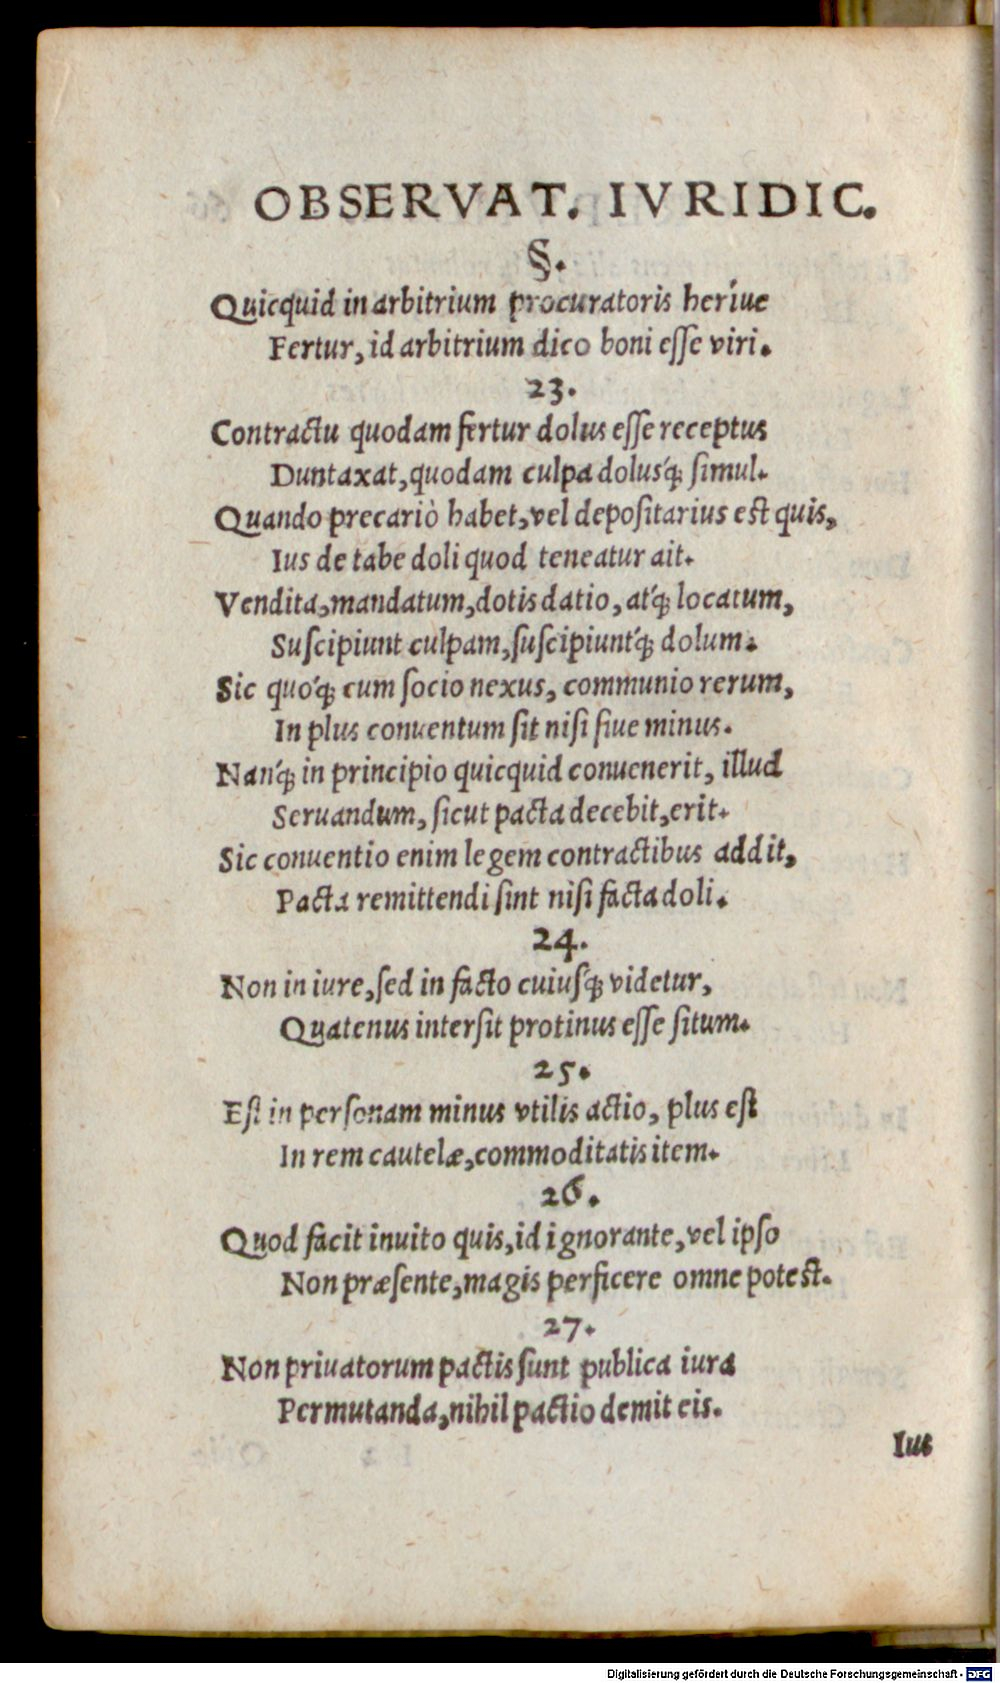 OBSERVAT. IVRIDIC.
§.
Quicquid in arbitrium procuratoris heríue
Fertur, id arbitrium dico boni eſſe viri.
23.
Contractu quodam fertur dolus eſſe receptus
Duntaxat, quodam culpa dolusq́; ſimul.
Quando precariò habet, vel depoſitarius eſt quis,
Ius de tabe doli quod teneatur ait.
Vendita, mandatum, dotis datio, atq́; locatum,
Suſcipiunt culpam, ſuſcipiuntq́; dolum.
Sic quoq́; cum ſocio nexus, communio rerum,
In plus conuentum ſit niſi ſiue minus.
Nanq́; in principio quicquid conuenerit, illud
Seruandum, ſicut pacta decebit, erit.
Sic conuentio enim legem contractibus addit,
Pacta remittendi ſint niſi facta doli.
24.
Non in iure, ſed in facto cuiuſq́; videtur,
Quatenus interſit protinus eſſe ſitum.
25.
Eſt in perſonam minus vtilis actio, plus eſt
In rem cautelæ, commoditatis item.
26.
Quod facit inuito quis, id ignorante, vel ipſo
Non præſente, magis perficere omne poteſt.
27.
Non priuatorum pactis ſunt publica iura
Permutanda, nihil pactio demit eis.
Ius
Digitalisierung gefördert durch die Deutsche Forschungsgemeinschaft - DFG